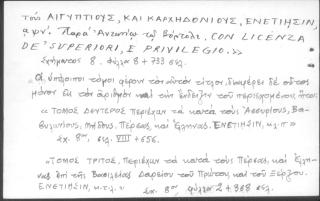 τοὺς ΑΙΓΥΠΤΙΟΥΣ, ΚΑΙ ΚΑΡΧΗΔΟΝΙΟΥΣ, ΕΝΕΤΙΗΣΙΝ,
αψν. Παρὰ Ἀντωνίῳ τῷ Βόρτολι. CON LICENZA
DE' SUPERIORI, E PRIVILEGIO.»
Σχήματος 8. φύλλα 8 + 733 σελ.
«Οἱ ὑπόλοιποι τόμοι φέρουν τὸν αὐτὸν τίτλον, διαφέρει δὲ οὗτος
μόνον εἰς τὸν ἀριθμὸν καὶ τὴν ἔνδειξιν τοῦ περιεχομένου, ἤτοι:
«ΤΟΜΟΣ ΔΕΥΤΕΡΟΣ Περιέχων τὰ κατὰ τοὺς Ἀσσυρίους, Βα-
βυλωνίους, Μήδους, Πέρσας, καὶ Ἕλληνας. ΕΝΕΤΙΗΣΙΝ, κ.τ.λ.»
σχ. 8ον, σελ. VIII + 656.
«ΤΟΜΟΣ ΤΡΙΤΟΣ, Περιέχων τὰ κατὰ τοὺς Πέρσας, καὶ Ἕλλη-
νας ἐπὶ τῆς Βασιλείας Δαρείου τοῦ Πρώτου, καὶ τοῦ Ξέρξου.
ΕΝΕΤΙΗΣΙΝ, κ.τ.λ.» σχ. 8ον, φύλλα 2 + 368 σελ.